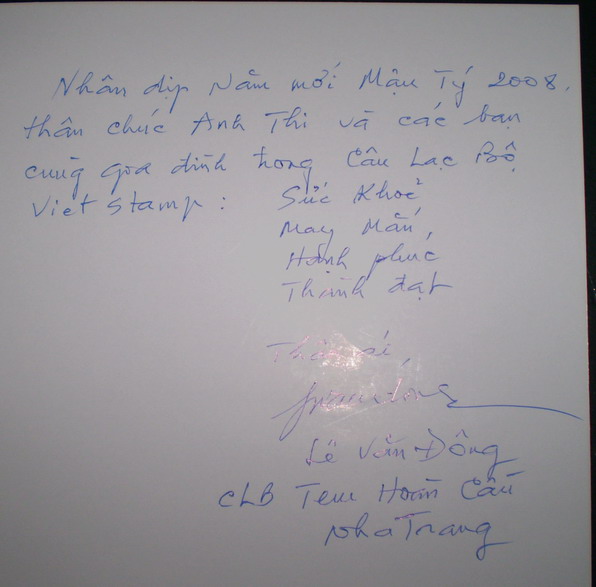 Nhân dịp Năm mới Mậu Tý 2008.
thân chúc Anh Thi và các bạn
cùng gia đình trong Câu Lạc Bộ
Viet Stamp :
Sức Khoẻ
May Mắn,
Hạnh phúc
Thành đạt
Thân ái,
Lê Văn Đông
CLB Tem Hoàn Cầu
Nha Trang